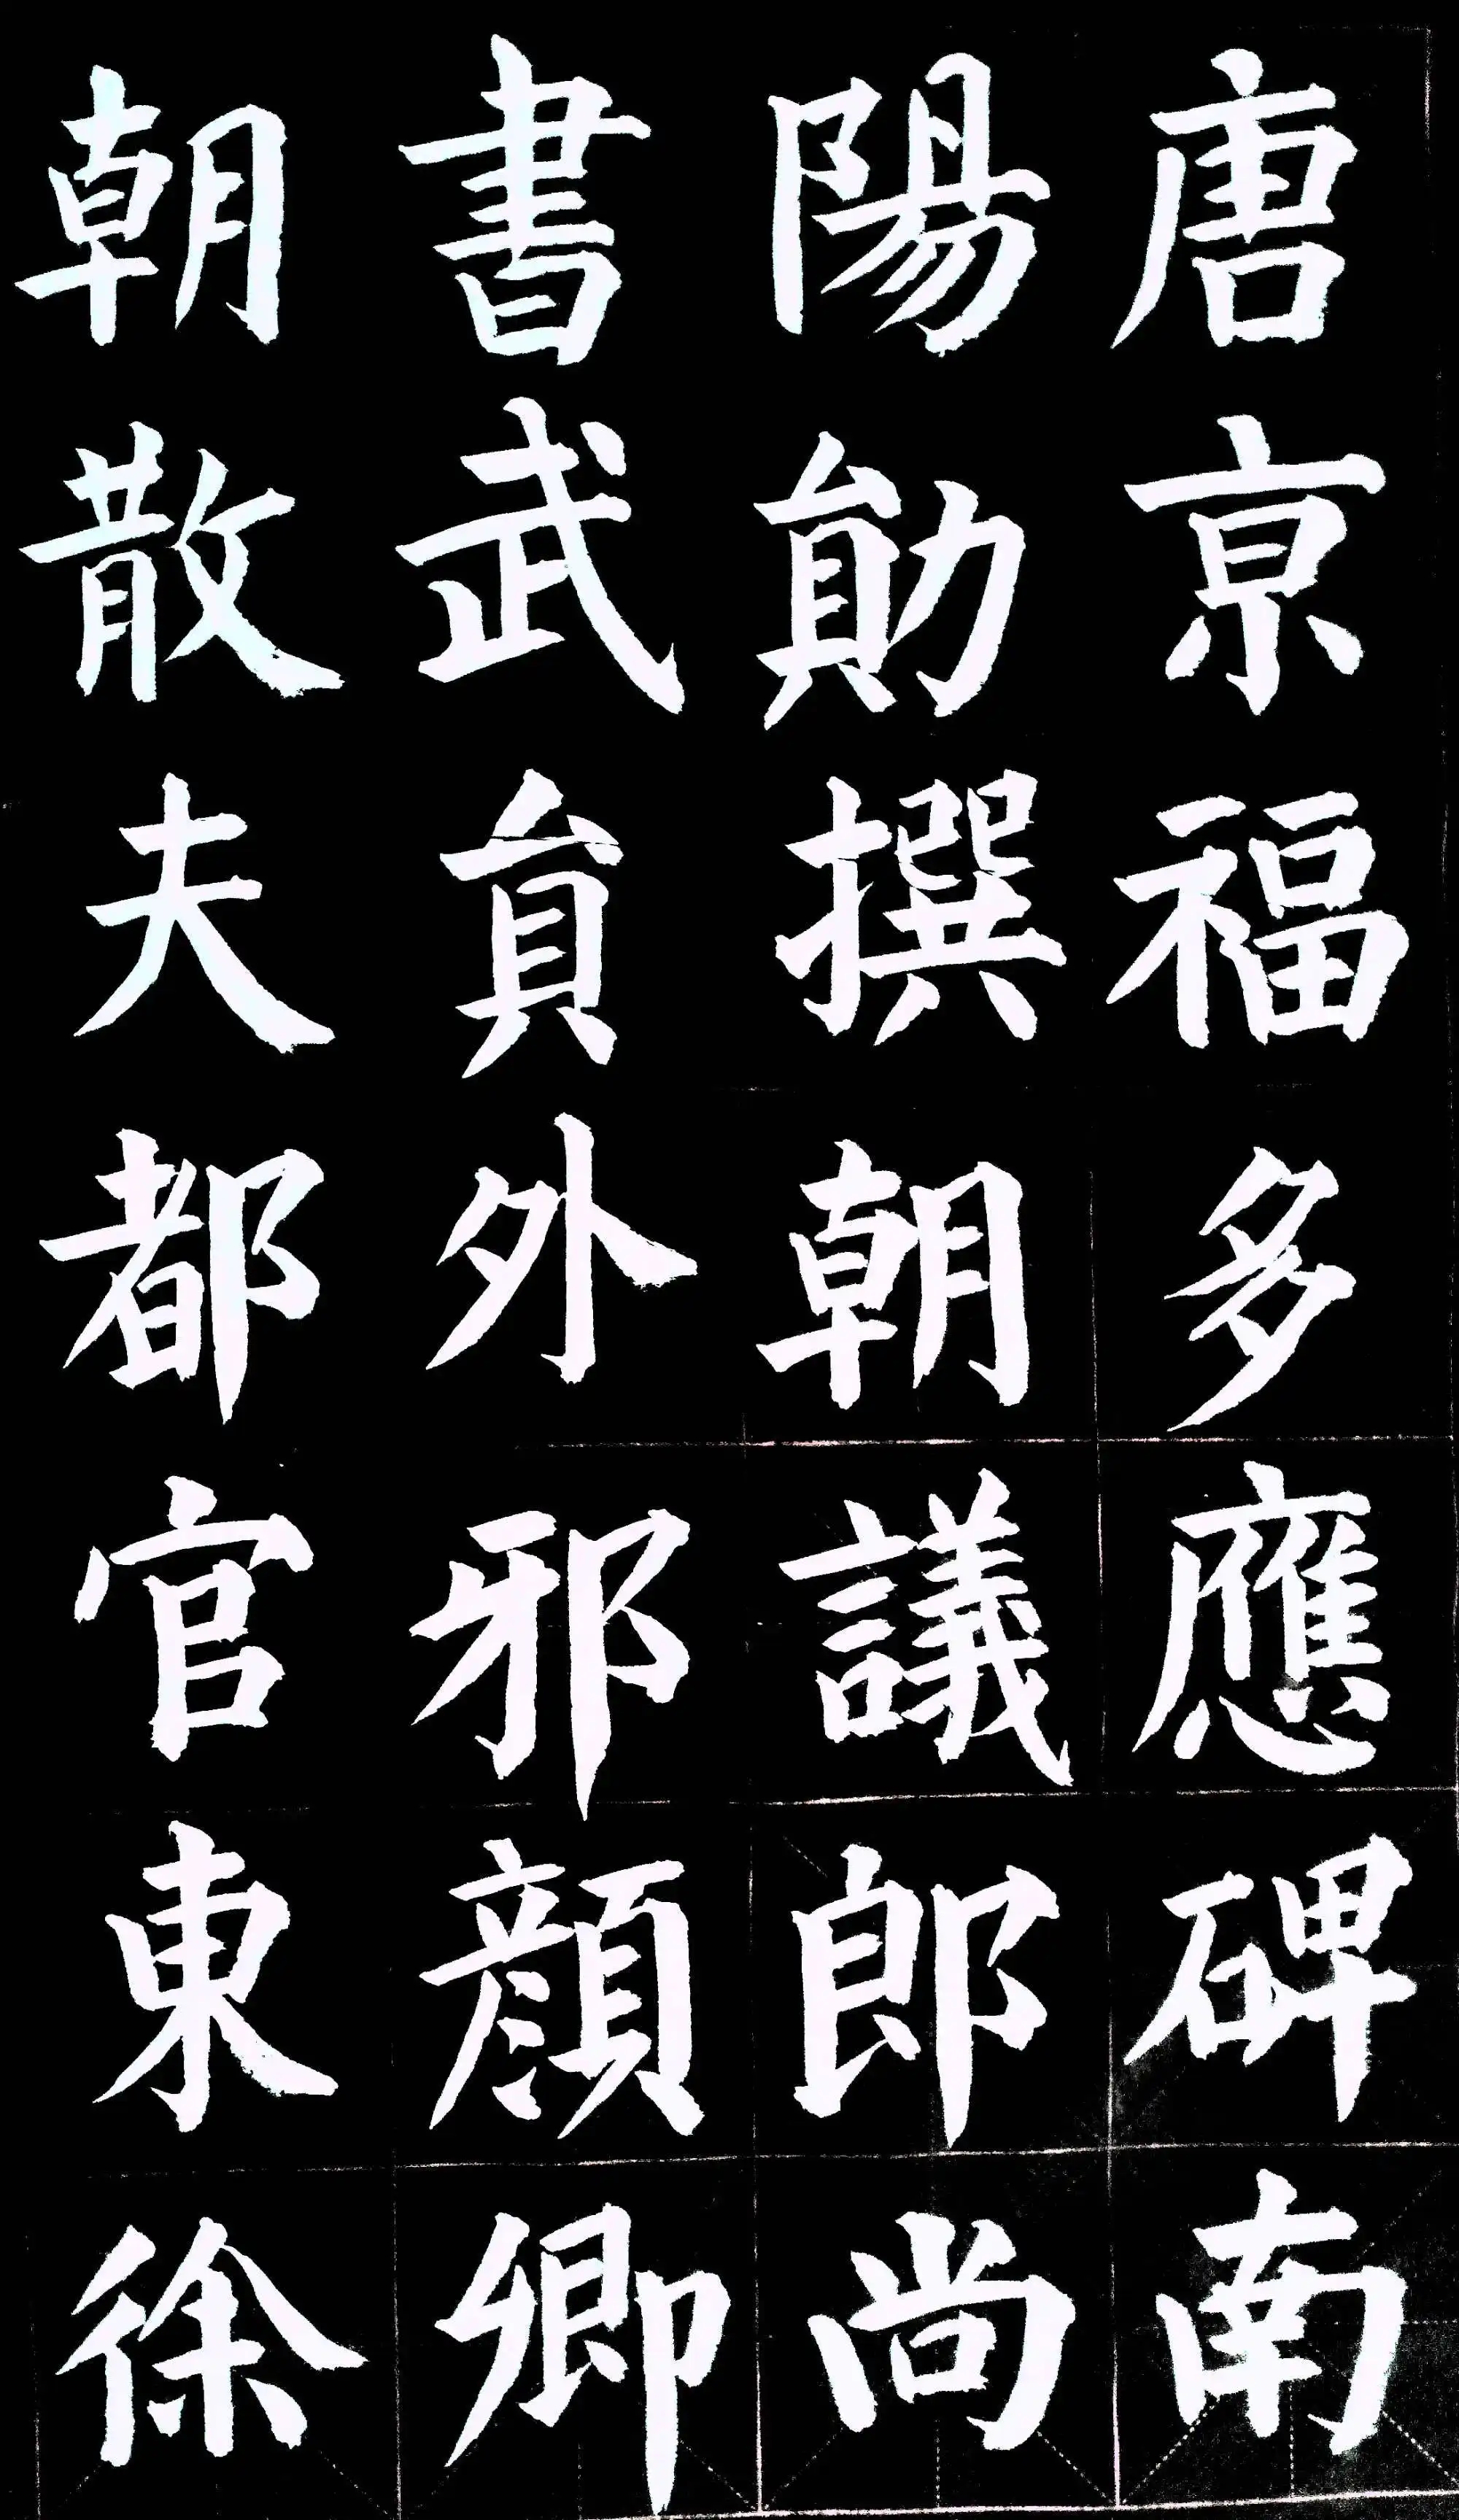 唐京福多應碑南
陽勛撰朝議郎尚
書武員外邪顏卿
朝散夫都官東徐